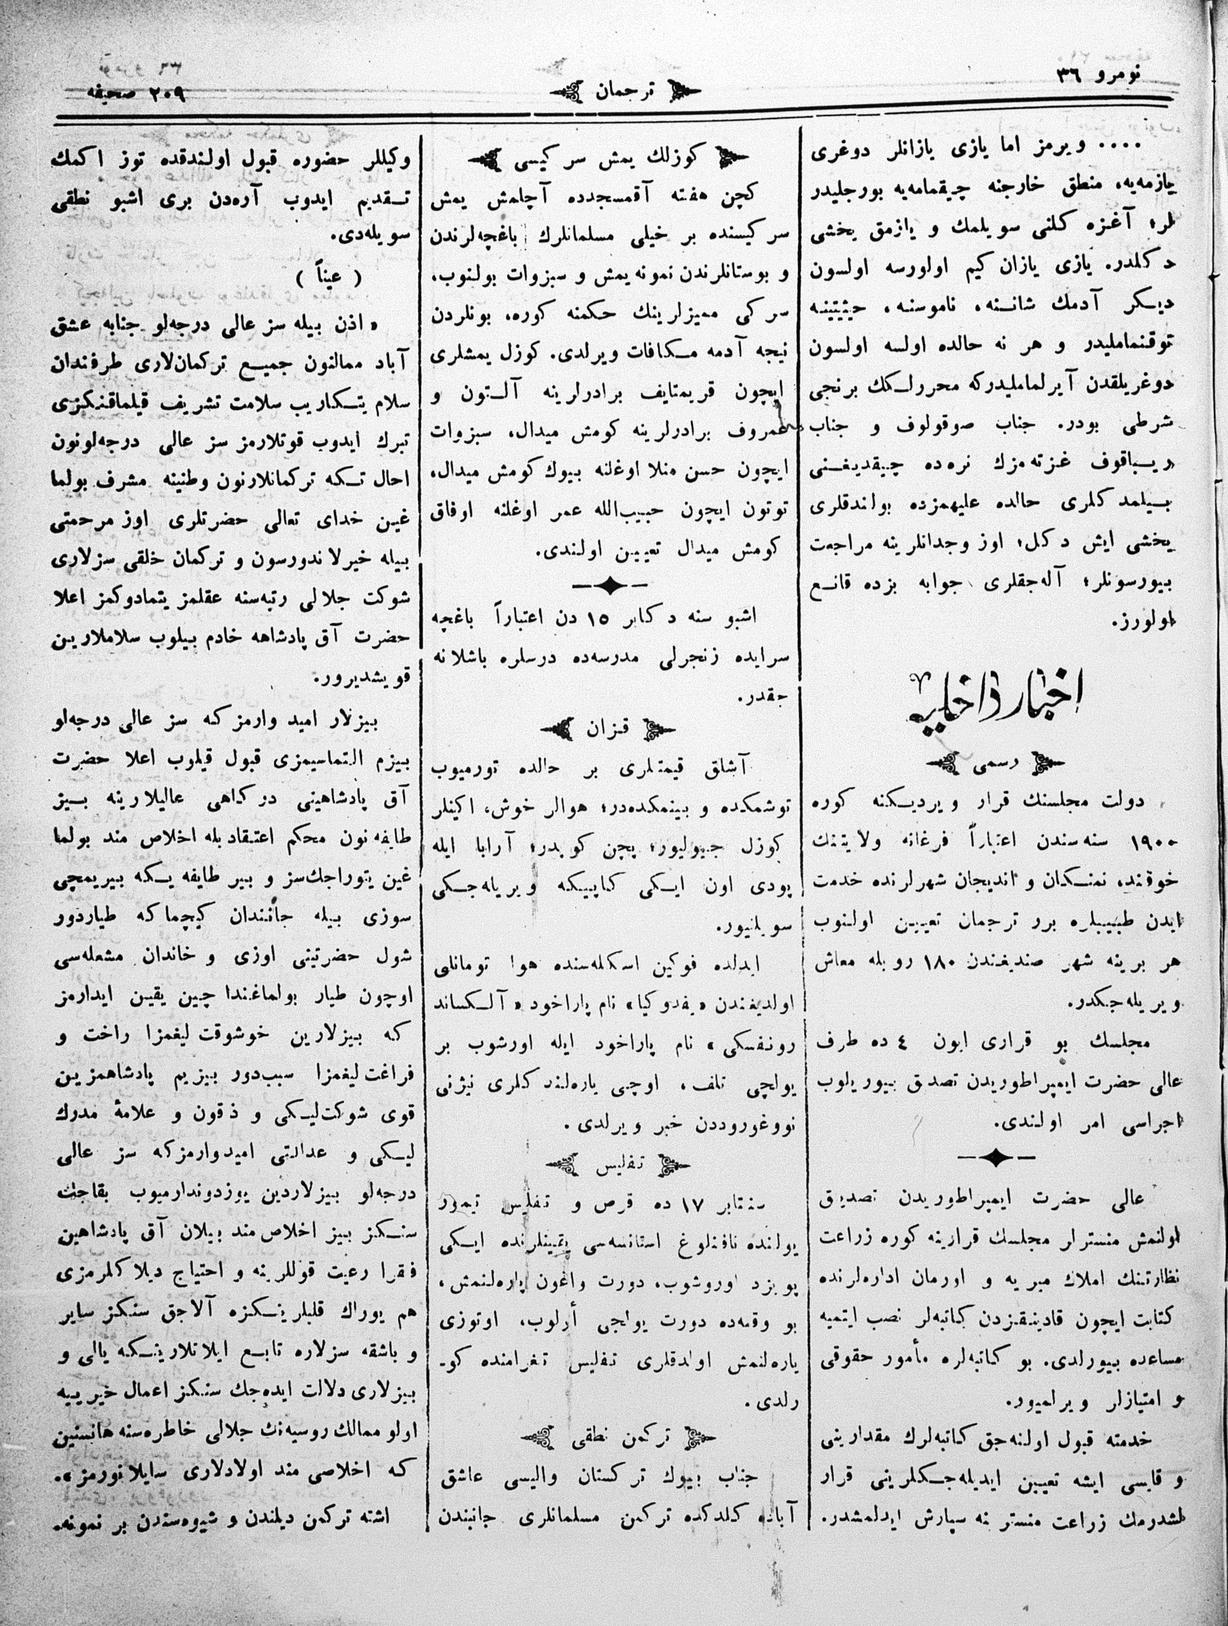 نومرو ٣٦
ترجمان
٢٠٩ صحيفه
.... ويرمز اما يازى يازانلر دوغرى
يازمه‌يه، منطق خارجنه چيقمامه‌يه بورجليدر
لر؛ آغزه كلنى سويلمك و يازمق يخشى
دكلدر. يازى يازان كيم اولورسه اولسون
ديكر آدمك شاننه، ناموسنه، حيثيتنه
توقنماملیدر و هر نه حالده اولسه اولسون
دوغريلقدن آيرلماملیدركه محررلكك برنجى
شرطى بودر. جناب صوقولوف و جناب
ريباقوف غزته‌مزك نره‌ده چيقديغنى
بيلمدكلرى حالده عليهمزده بولندقلرى
يخشى ايش دكل؛ اوز وجدانلرينه مراجعت
بيورسونلر؛ آله‌جقلرى جوابه بزده قانع
اولورز.
اخبار داخليه
رسمى
دولت مجلسنك قرار ويرديكنه كوره
١٩٠٠ سنه‌سندن اعتباراً فرغانه ولايتنك
خوقند، نمنكان و انديجان شهرلرنده خدمت
ايدن طبيبلره برر ترجمان تعيين اولنوب
هر برينه شهر صنديغندن ١٨٠ روبله معاش
ويريله‌جكدر.
مجلسك بو قرارى ايون ٤ ده طرف
عالى حضرت ايمپراطوريدن تصديق بيوريلوب
اجراسى امر اولندى.
عالى حضرت ايمپراطوريدن تصديق
اولنمش منسترلر مجلسك قرارينه كوره زراعت
نظارتنك املاك ميريه و اورمان اداره‌لرنده
كتابت ايچون قادينقزدن كاتبه‌لر نصب ايتميه
مساعده بيورلدى. بو كاتبه‌لره مأمور حقوقى
و امتيازلر ويرلميور.
خدمته قبول اولنه‌جق كاتبه‌لرك مقدارينى
و قايسى ايشه تعيين ايديله‌جكلرينى قرار
لشدرمك زراعت منسترنه سپارش ايدلمشدر.
كوزلك يمش سركيسى
كچن هفته آقمسجدده آچلمش يمش
سركيسنده بر خيلى مسلمانلرك باغچه‌لرندن
و بوستانلرندن نمونه يمش و سبزوات بولنوب،
سركى مميزلرينك حكمنه كوره، بونلردن
نيجه آدمه مكافات ويرلدى. كوزل يمشلرى
ايچون قريمتايف برادرلرينه آلتون و
عمروف برادرلرينه كومش ميدال، سبزوات
ايچون حسن منلا اوغلنه بيوك كومش ميدال،
توتون ايچون حبيب‌الله عمر اوغلنه اوفاق
كومش ميدال تعيين اولندى.
اشبو سنه دكابر ١٥ دن اعتباراً باغچه
سرايده زنجرلى مدرسه‌ده درسلره باشلانه
جقدر.
قزان
آشلق قيمتلرى بر حالده تورميوب
توشمكده و بينمكده‌در؛ هوالر خوش، اكينلر
كوزل جيوليور؛ پچن كوپدر؛ آرابا ايله
پودى اون ايكى كاپيكه ويريله‌جكى
سويلنيور.
ايدلده فوكين اسكله‌سنده هوا تومانلى
اولديغندن «يفدوكيا» نام پاراخود «آلكساند
رونفسكى» نام پاراخود ايله اورشوب بر
يولچى تلف، اوچى ياره‌لندكلرى نيژنى
نووغوروددن خبر ويرلدى.
تفليس
سنتابر ١٧ ده قرص و تفليس تيمور
يولنده نافتلوغ استانسه‌سى يقينلرنده ايكى
پويزد اوروشوب، دورت واغون پاره‌لنمش،
بو وقعه‌ده دورت يولجى أولوب، اوتوزى
ياره‌لنمش اولدقلرى تفليس تلغرامنده كو‌-
رلدى.
تركمن نطقى
جناب بيوك تركستان واليسى عاشق
آباده كلدكده تركمن مسلمانلرى جانبندن
وكيللر حضوره قبول اولندقده توز اكمك
تقديم ايدوب آره‌دن برى اشبو نطقى
سويله‌دى.
( عيناً )
« اذن بيله سز عالى درجه‌لو جنابه عشق
آباد ممالنون جميع تركمان‌لارى طرفندان
سلام يتكاريب سلامت تشريف قيلماقنكزى
تبرك ايدوب قوتلارمز سز عالى درجه‌لونون
احال تكه تركمانلارنون وطنينه مشرف بولما
غين خداى تعالى حضرتلرى اوز مرحمتى
بيله خيرلاندورسون و تركمان خلقى سزلارى
شوكت جلالى رتبه‌سنه عقلمز يتمادوكمز اعلا
حضرت آق پادشاهه خادم بيلوب سلاملارين
قويشديرور.
بيزلار اميد وارمزكه سز عالى درجه‌لو
بيزم التماسيمزى قبول قيلوب اعلا حضرت
آق پادشاهينى دركاهى عاليلارينه بيز
طايفه‌نون محكم اعتقاد بله اخلاص مند بولما
غين يتوراجك‌سز و بير طايفه يكه بيريمچى
سوزى بيله جاننندان كيچماكه طياردور
شول حضرتينى اوزى و خاندان مشعله‌سى
اوچون طيار بولماغندا چين يقين ايدارمز
كه بيزلارين خوشوقت ليغمزا راخت و
فراغت ليغمزا سبب‌دور بيزيم پادشاهمزين
قوى شوكت‌ليكى و ذقون و علامهٔ مدرك
ليكى و عدالتى اميدوارمزكه سز عالى
درجه‌لو بيزلاردين يوزدوندارميوب بقاجك
سنكز بيز اخلاص مند بيلان آق پادشاهين
فقرا رعيت قوللرينه و احتياج ديلاكلرمزى
هم يوراك قلبلرينكزه آلاجق سنكز ساير
و باشقه سزلاره تابع ايلاتلارينكه يالى و
بيزلارى دلالت ايده‌جك سنكز اعمال خيرييه
اولو ممالك روسيه‌نك جلالى خاطره‌سنه هانسنين
كه اخلاصى مند اولادلارى سايلانورمز».
اشته تركمن ديلندن و شيوه‌سندن بر نمونه.